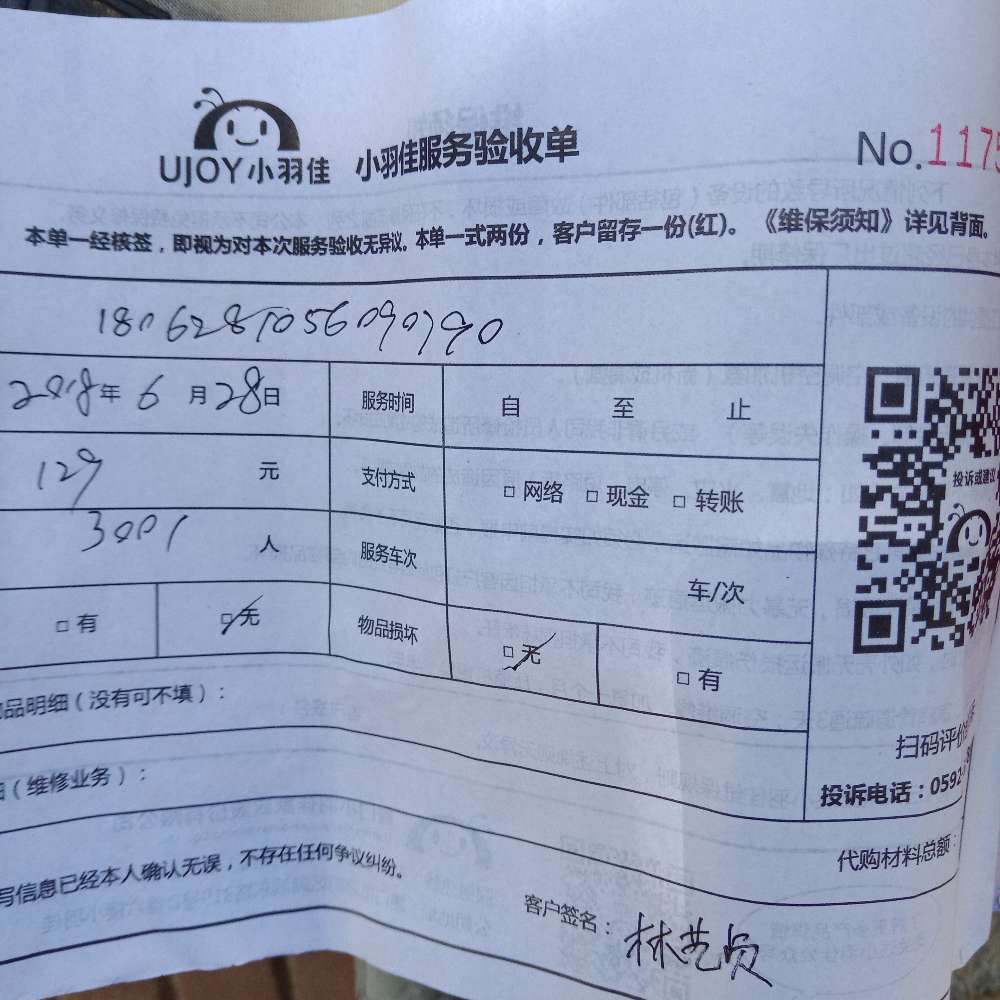 UJOY小羽佳 小羽佳服务验收单 No.1175
本单一经核签，即视为对本次服务验收无异议。本单一式两份，客户留存一份(红)。《维保须知》详见背面。
2018年 6月28日 服务时间 自 至 止
129 元 支付方式 □ 网络 □ 现金 □ 转账
3001 人 服务车次 车/次
□ 有 □ 无 物品损坏 □ 无 □ 有
投诉或建议
品明细（没有可不填）：
（维修业务）：
扫码评价
投诉电话：0592
写信息已经本人确认无误，不存在任何争议纠纷。
代购材料总额：
客户签名：林艺